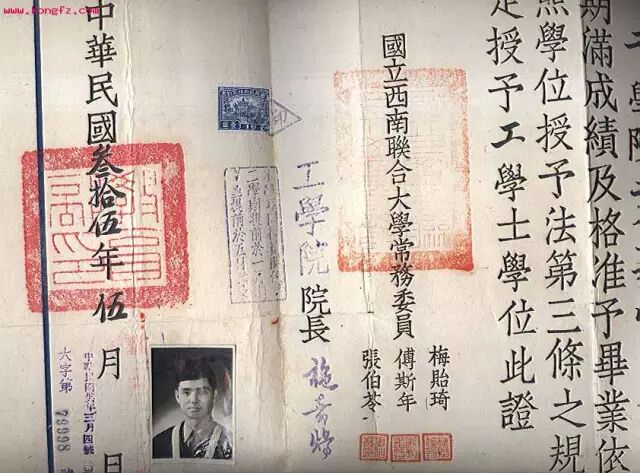 期滿成績及格准予畢業依
照學位授予法第三條之規
定授予工學士學位此證
國立西南聯合大學常務委員
梅貽琦
傅斯年
張伯苓
工學院院長
施嘉煬
中華民國叁拾伍年伍月 日
六字第79998號
www.kongfz.com